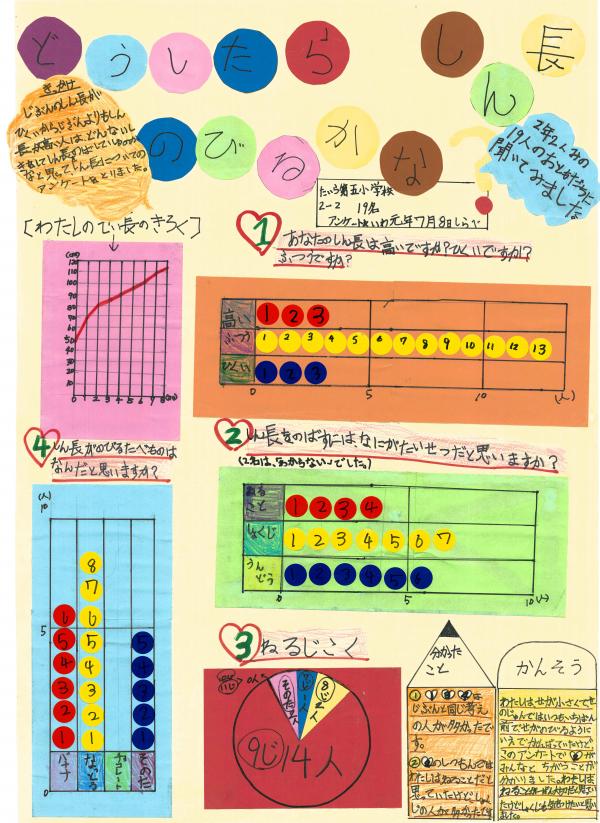 どうしたら
しん長
のびるかな?
きっかけ
じぶんのしん長が
ひくいからじぶんよりもしん
長が高い人は、どんないしき
なと思ってしん長についての
アンケートをとりました。
2年2人の
19人のおともだちに
聞いてみました。
たいら第五小学校
2-2 19名
アンケートれいわ元年7月8日しらべ
[わたしのしん長のきろく]
(cm)
120
110
100
90
80
70
60
50
40
30
20
10
0 1 2 3 4 5 6 7 8(さい)
1 あなたのしん長は高いですか?ひくいですか?
ふつうですか?
高い 1 2 3
ふつう 1 2 3 4 5 6 7 8 9 10 11 12 13
ひくい 1 2 3
0 5 10 (人)
2 しん長をのばすには、なにがたいせつだと思いますか?
(2名は、わからないでした。)
ねること 1 2 3 4
しょくじ 1 2 3 4 5 6 7
うんどう 1 2 3 4 5 6
0 5 10(人)
4 しん長がのびるたべものは
なんだと思いますか?
(人)
10
5
0
6 5 4 3 2 1
8 7 6 5 4 3 2 1
5 4 3 2 1
バナナ
なっとう
チョコレート
そのた
3 ねるじこく
0人
そのた2人
7じ1人
8じ2人
9じ14人
分かった
こと
じぶんと同じ考え
の人が多かったで
す。
のしつもんでは
わたしはねることだと
思っていたけどしょく
じの人が多かったです
かんそう
わたしはせが小さくてせ
のじゅんではいつもいちばん
前でせがのびるように
いえでがんばっていたけど、
このアンケートで
みんなとちがうことが
分かりました。わたしは